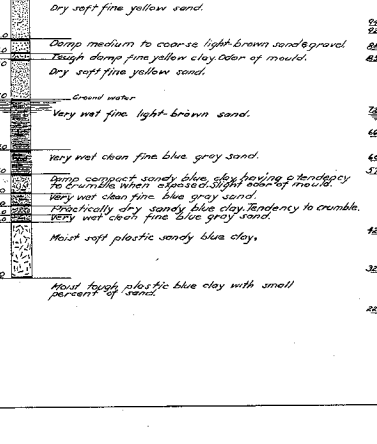 Dry soft fine yellow sand.
Damp medium to coarse light-brown sand & gravel
Tough damp fine yellow clay. Odor of mould.
Dry soft fine yellow sand.
Ground water
Very wet fine light-brown sand.
Very wet clean fine blue gray sand.
Damp compact sandy blue clay having a tendency
to crumble when exposed. Slight odor of mould.
Very wet clean fine blue gray sand.
Practically dry sandy blue clay. Tendency to crumble.
Very wet clean fine blue gray sand.
Moist soft plastic sandy blue clay.
Moist tough plastic blue clay with small
percent of sand.